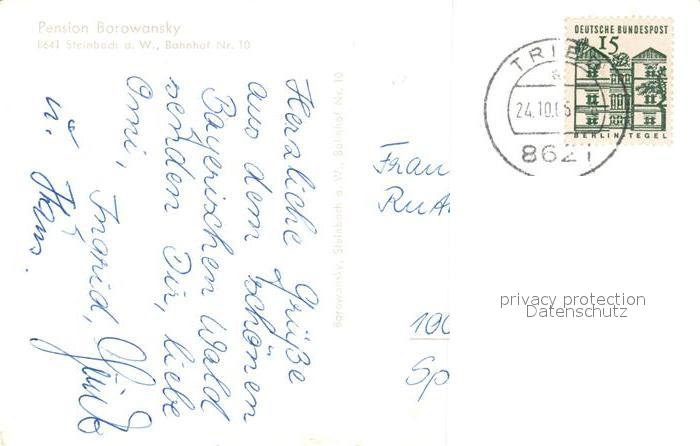 Pension Borowansky
8641 Steinbach a. W., Bahnhof Nr. 10
Herzliche Grüße
aus dem schönen
Bayerischen Wald
senden Dir, liebe
Omi, Ingrid,
u. Hans.
Borowansky, Steinbach a. W., Bahnhof Nr. 10
Frau
100
Sp
DEUTSCHE BUNDESPOST
15
BERLIN-TEGEL
TRIE
24.10.65
8621
privacy protection
Datenschutz